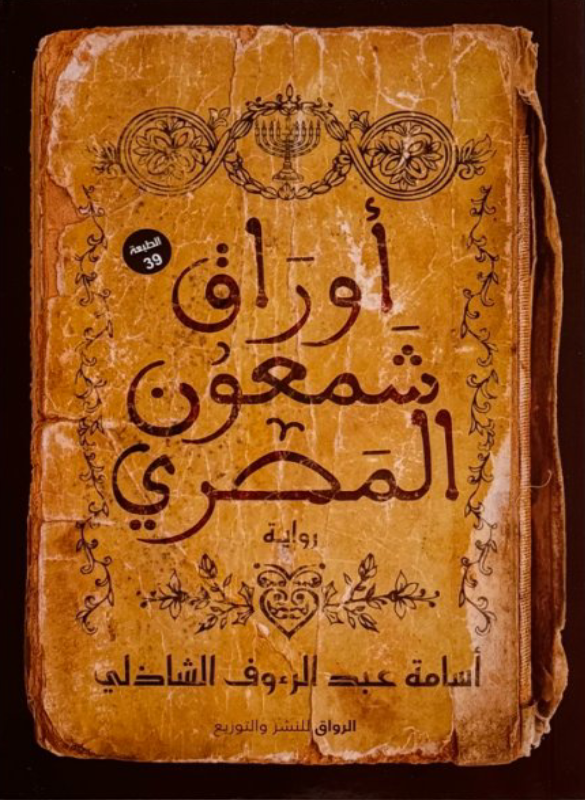 الطبعة
39
أوراق
شمعون
المصري
رواية
أسامة عبد الرءوف الشاذلي
الرواق للنشر والتوزيع